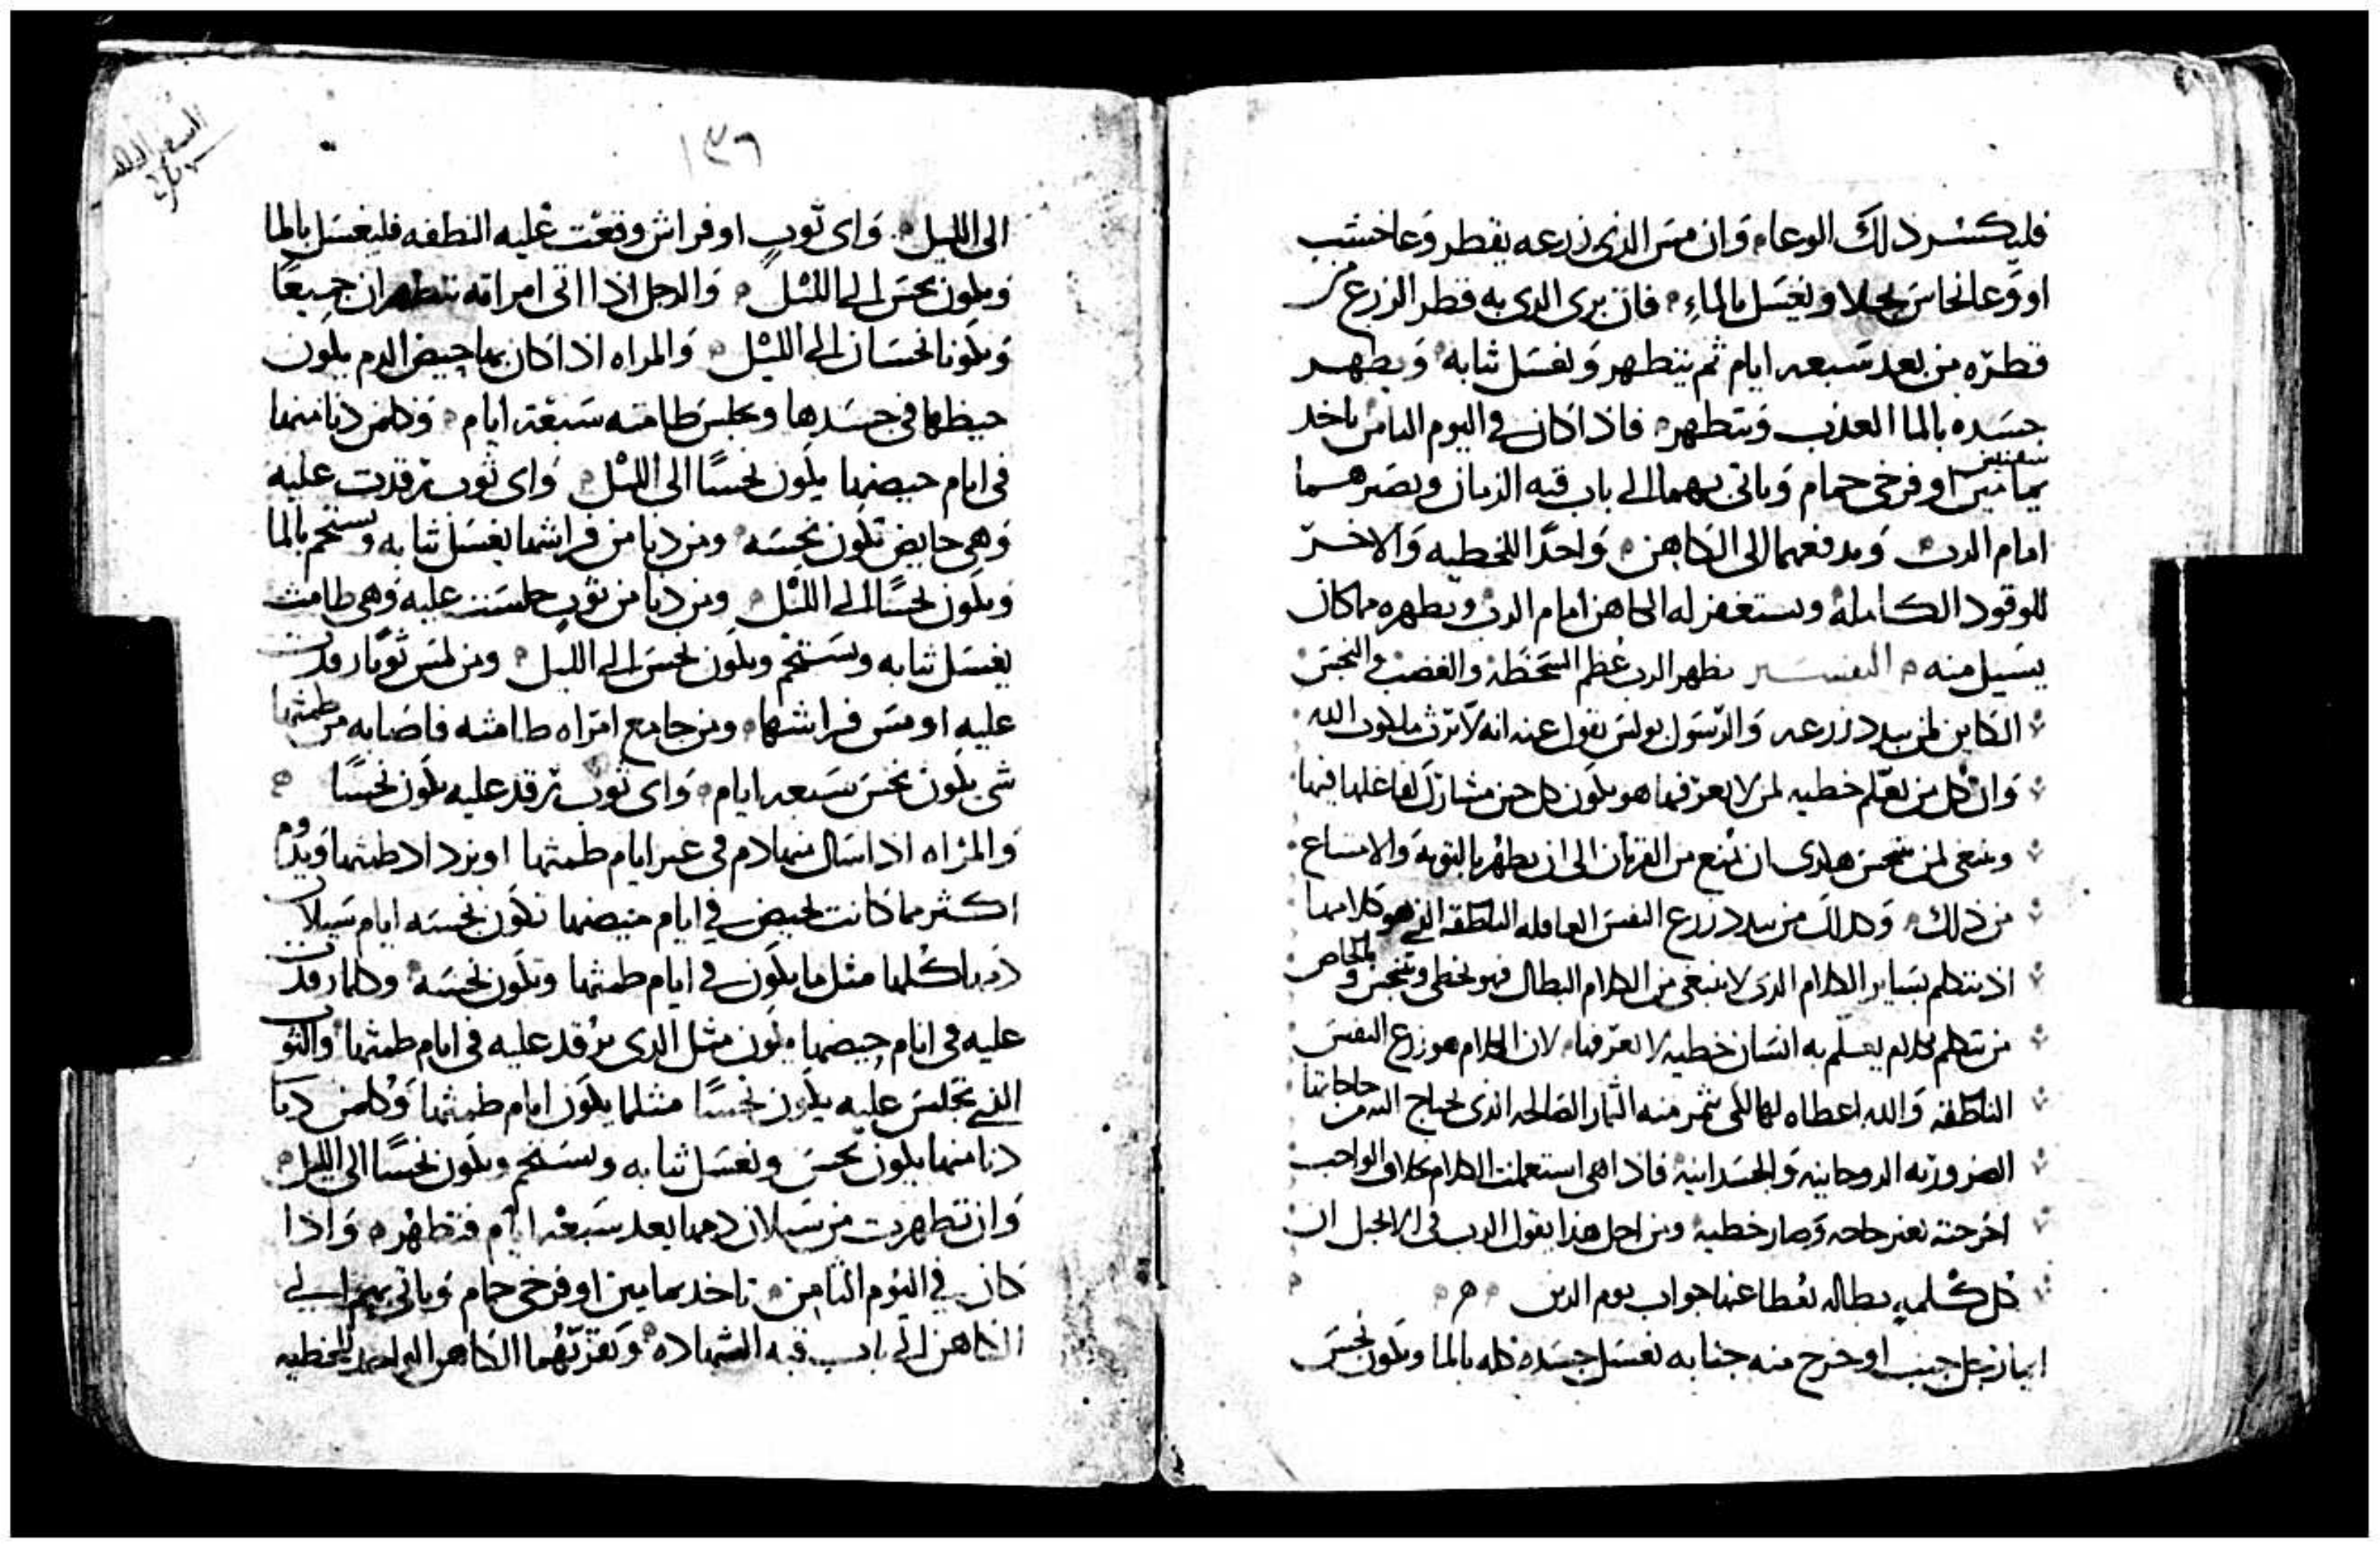 فليكسر ذلك الوعاء وان مس الذى زرعه يقطر وعا خشب
او وعا نحاس يجلا ويغسل بالماء فان برى الدى به قطر الزرع من
قطره من بعد سبعه ايام ثم يتطهر ويغسل ثيابه ويطهر
جسده بالما العذب ويتطهر فاذا كان فى اليوم الثامن ياخد
شفنينين
يمامتين او فرخى حمام وياتى بهما الى باب قبه الزمان ويصيرهما
امام الرب ويدفعهما الى الكاهن واحدا للخطيه والاخر
للوقود الكامله ويستغفر له الكاهن امام الرب ويطهره مما كان
يسيل منه التفسير يظهر الرب عظم السخطه والغضب والنجس
الكاين لمن يبدد زرعه والرسول بولس يقول عنه انه لا يرث ملكوت الله
وان كل من يعلم خطيه لمن لا يعرفها هو يكون كل حين مشارك لفاعلها فيها
وينبغى لمن يتنجس هكدى ان يمنع من القربان الى ان يطهر بالتوبه والامتناع
من ذلك وكدلك من يبدد زرع النفس العاقله الناطقه الذى هو كلامها
اذ يتكلم بساير الكلام الدى لا ينبغى من الكلام البطال فهو يخطى ويتنجس وبالخاص
من يتكلم بكلام يعلم به انسان خطيه لا يعرفها لان الكلام هو زرع النفس
الناطقه والله اعطاه لها لكى يثمر منه الثمار الصالحه الذى يحتاج اليه من حاجاتها
الضروريه الروحانيه والجسدانيه فاذا هى استعملت الكلام بخلاف الواجب
اخرجته بغير حاجه وصار خطيه ومن اجل هذا يقول الرب فى الانجيل ان
كل كلمه بطاله يعطا عنها جواب يوم الدين
ايما رجل جنب او خرج منه جنابه يغسل جسده كله بالما ويكون نجس
١٣٦
الى الليل واى ثوب او فراش وقعت عليه النطفه فليغسل بالما
ويكون نجس الى الليل والرجل اذا اتى امراته يتطهران جميعا
ويكونا نجسان الى الليل والمراه اذا كان بها حيض الدم يكون
حيظها فى جسدها وتجلس طامته سبعة ايام وكلمن دنا منها
فى ايام حيضها يكون نجسا الى الليل واى ثوب ترقدت عليه
وهى حايض تكون نجسه ومن دنا من فراشها يغسل ثيابه ويستحم بالما
ويكون نجسا الى الليل ومن دنا من ثوب جلست عليه وهى طامث
يغسل ثيابه ويستحم ويكون نجس الى الليل ومن لمس ثوبا رقدت
عليه او مس فراشها ومن جامع امراه طامثه فاصابه من طمثها
شى يكون نجس سبعه ايام واى ثوب ترقد عليه يكون نجسا
والمراه اذا سال منها دم فى غير ايام طمثها او يزداد طمثها ويدوم
اكثر مما كانت تحيض فى ايام حيضها تكون نجسه ايام سيلان
دمها كلها مثل ما يكون فى ايام طمثها وتكون نجسه وكلما رقدت
عليه فى ايام حيضها يكون مثل الدى يرقد عليه فى ايام طمثها والثوب
الذى تجلس عليه يكون نجسا مثلما يكون ايام طمثها وكلمن دنا
دنا منها يكون نجس ويغسل ثيابه ويستحم ويكون نجسا الى الليل
وان تطهرت من سيلان دمها بعد سبعه ايام فتطهره واذا
كان فى اليوم الثامن تاخد يمامين او فرخى حمام وياتى بهم الى
الكاهن الى باب قبه الشهاده ويقربهما الكاهن الواحد للخطيه